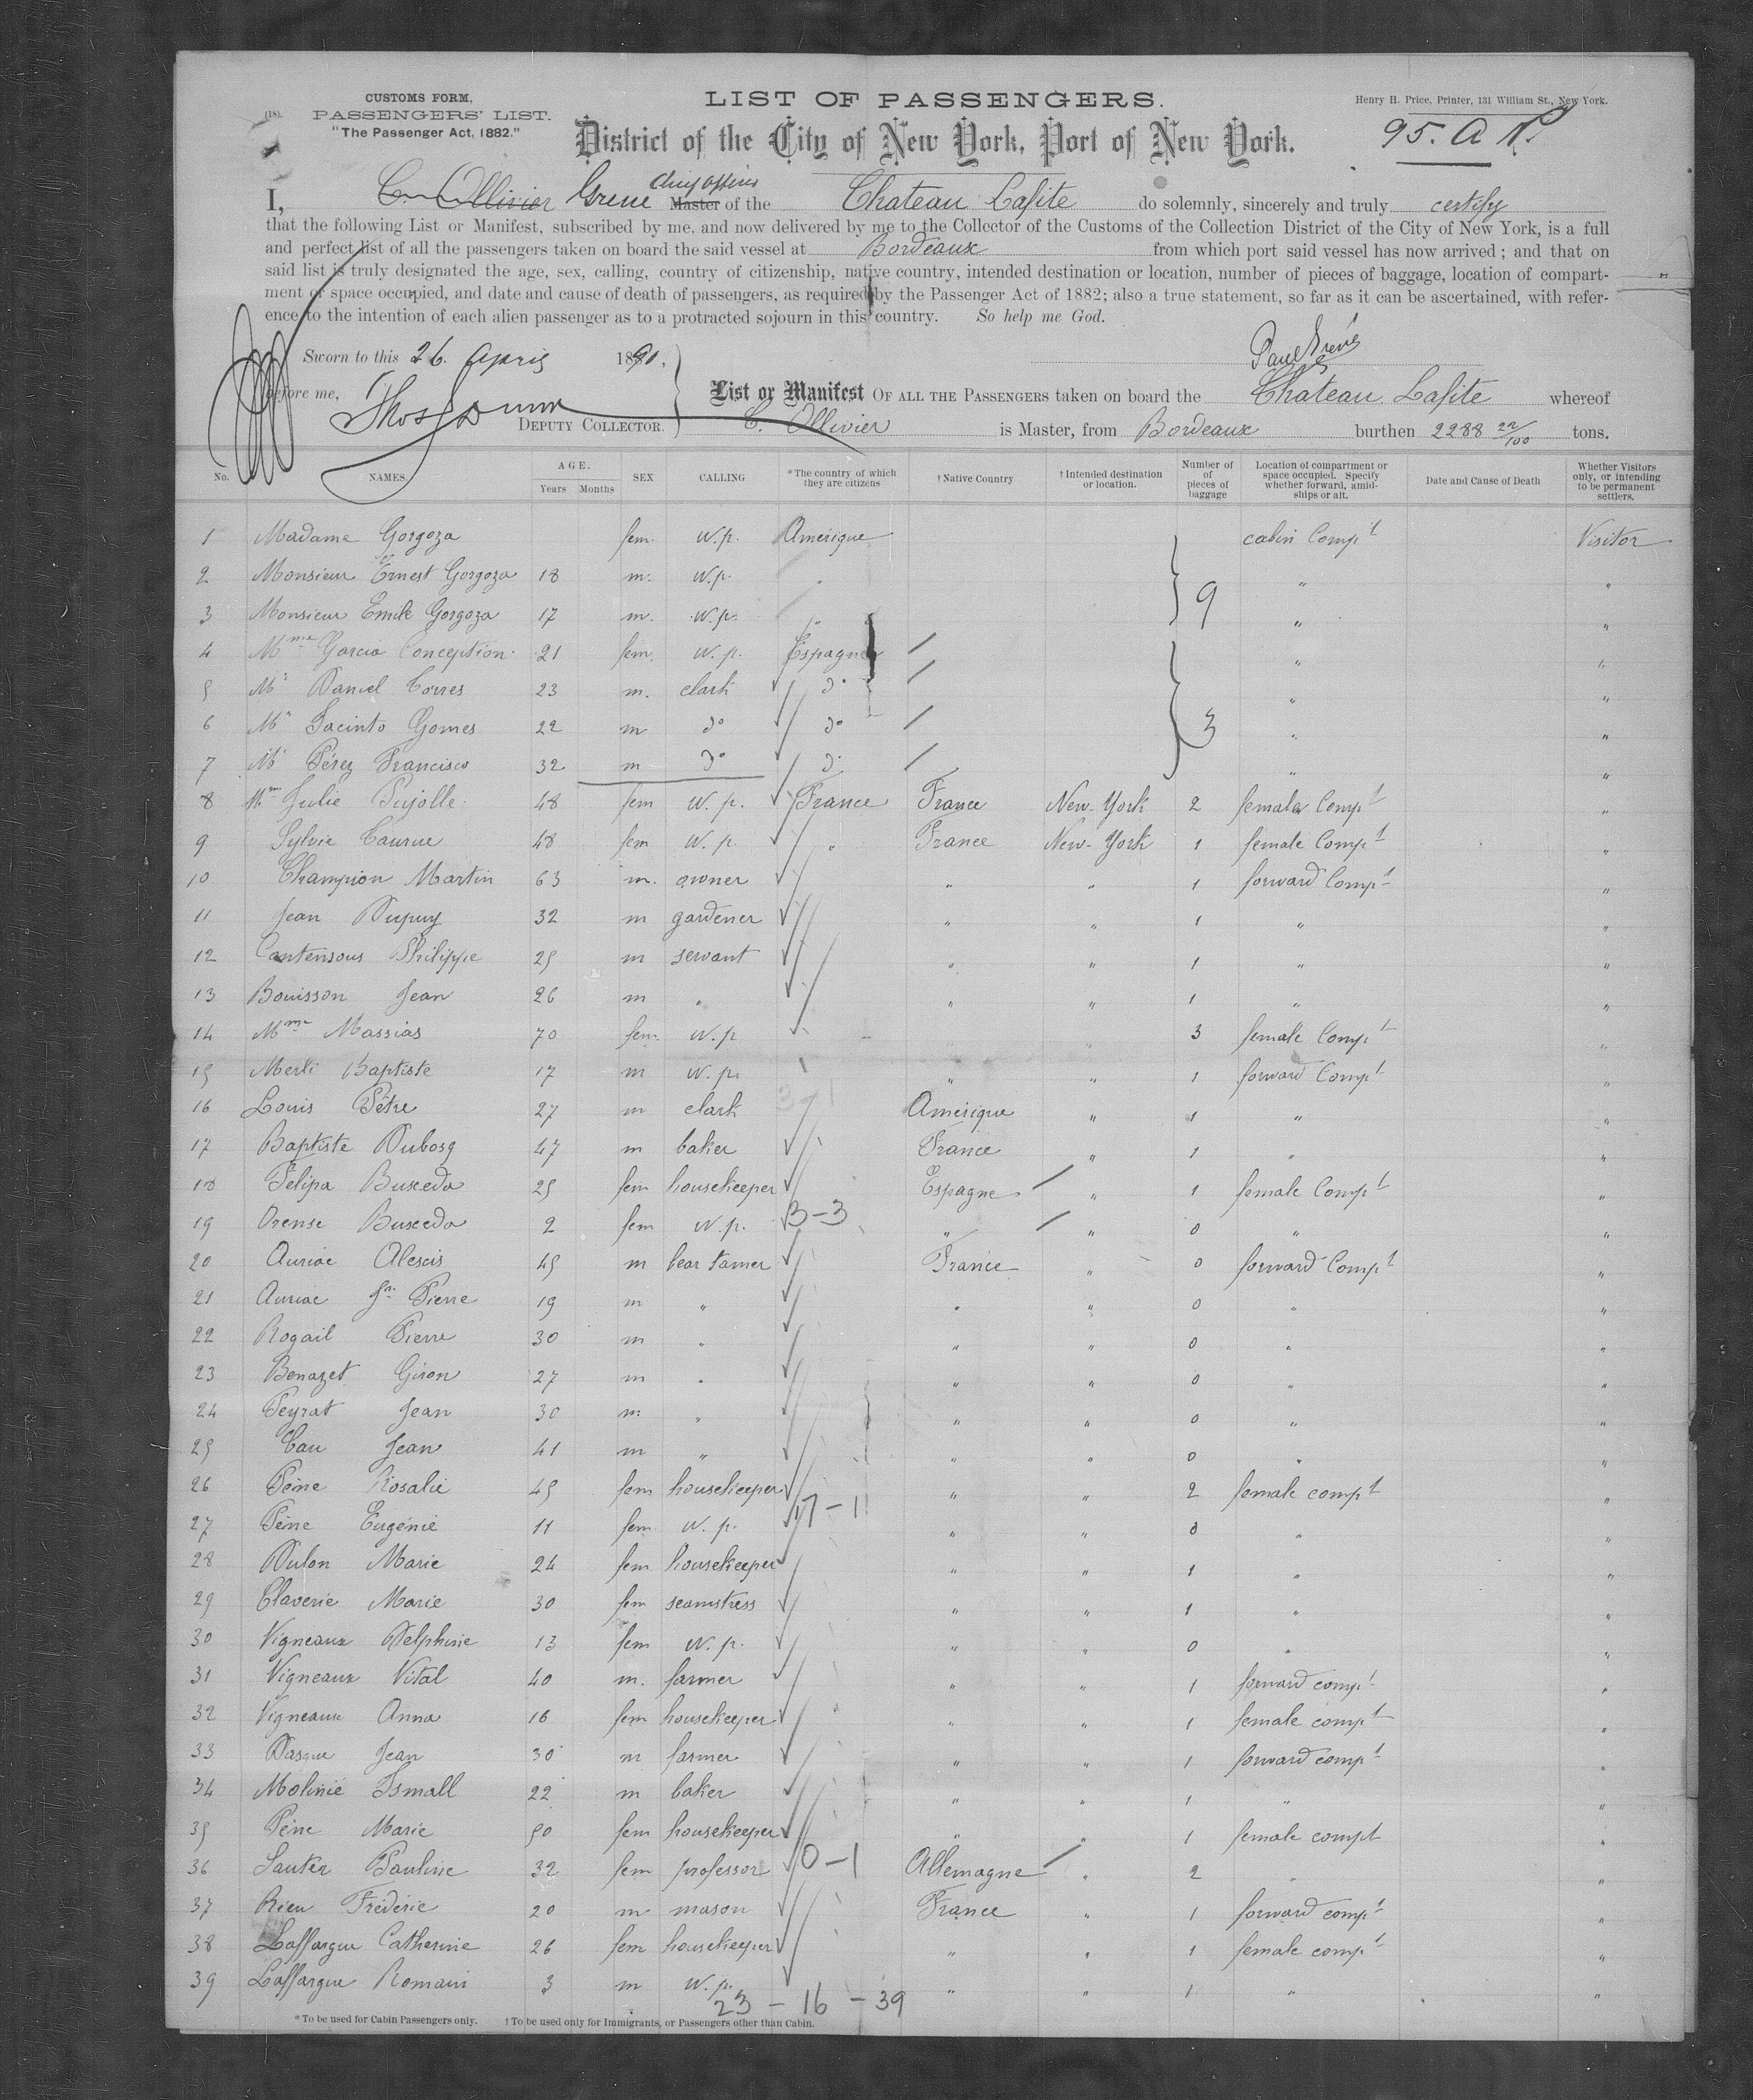 CUSTOMS FORM,
(18). PASSENGERS' LIST.
"The Passenger Act, 1882."
LIST OF PASSENGERS.
District of the City of New York, Port of New York.
Henry H. Price, Printer, 131 William St., New York.
95. A
I, C. Ollivier Master of the Chateau Lafite do solemnly, sincerely and truly certify
that the following List or Manifest, subscribed by me, and now delivered by me to the Collector of the Customs of the Collection District of the City of New York, is a full
and perfect list of all the passengers taken on board the said vessel at Bordeaux from which port said vessel has now arrived; and that on
said list is truly designated the age, sex, calling, country of citizenship, native country, intended destination or location, number of pieces of baggage, location of compart-
ment or space occupied, and date and cause of death of passengers, as required by the Passenger Act of 1882; also a true statement, so far as it can be ascertained, with refer-
ence to the intention of each alien passenger as to a protracted sojourn in this country. So help me God.
Sworn to this 26. April 1890.
before me,
DEPUTY COLLECTOR.
List or Manifest OF ALL THE PASSENGERS taken on board the Chateau Lafite whereof
C. Ollivier is Master, from Bordeaux burthen 2288 22/100 tons.
No. NAMES. AGE. Years Months SEX CALLING *The country of which they are citizens †Native Country †Intended destination or location. Number of of pieces of baggage Location of compartment or space occupied. Specify whether forward, amid-ships or aft. Date and Cause of Death Whether Visitors only, or intending to be permanent settlers.
1 Madame Gorgoza fem. w.p. Amérique cabin Compt Visitor
2 Monsieur Ernest Gorgoza 18 m. w.p. " " "
3 Monsieur Emile Gorgoza 17 m. w.p. " 9 " "
4 Mme Garcia Conception 21 fem. w.p. Espagne " "
5 Mr Daniel Torres 23 m. clark do " "
6 Mr Jacinto Gomes 22 m do do 3 " "
7 Mr Pérez Francisco 32 m do do " "
8 Mme Julie Pujolle 48 fem w.p. France France New-York 2 female Compt "
9 Sylvie 48 fem w.p. " France New-York 1 female Compt "
10 Champion Martin 63 m. owner " " 1 forward Compt "
11 Jean Dupuy 32 m gardener " " 1 " "
12 Cantensous Philippe 25 m servant " " 1 " "
13 Bouisson Jean 26 m " " " 1 " "
14 Mme Massias 70 fem. w.p " " 3 female Compt "
15 Merli Baptiste 17 m w.p. " " 1 forward Compt "
16 Louis Pètre 27 m clark Amérique " 1 " "
17 Baptiste Dubosq 47 m baker France " 1 " "
18 Felipa Buxeda 25 fem housekeeper Espagne " 1 female Compt "
19 Orense Buxeda 2 fem w.p. 3-3 " " 0 " "
20 Auriac Alexis 45 m bear tamer France " 0 forward Compt "
21 Auriac Jn Pierre 19 m " " " 0 " "
22 Rogail Pierre 30 m " " " 0 " "
23 Benazet Giron 27 m " " " 0 " "
24 Peyrat Jean 30 m " " " 0 " "
25 Cau Jean 41 m " " " 0 " "
26 Pène Rosalie 45 fem housekeeper " " 2 female compt "
27 Pène Eugénie 11 fem w.p. 17-1 " " 0 " "
28 Dulon Marie 24 fem housekeeper " " 1 " "
29 Claverie Marie 30 fem seamstress " " 1 " "
30 Vigneaux Delphine 13 fem w.p. " " 0 " "
31 Vigneaux Vital 40 m. farmer " " 1 forward compt "
32 Vigneaux Anna 16 fem housekeeper " " 1 female compt "
33 Dasque Jean 30 m farmer " " 1 forward compt "
34 Molinié Ismall 22 m baker " " 1 " "
35 Pène Marie 50 fem housekeeper " " 1 female compt "
36 Pauline 32 fem professor 0-1 Allemagne " 2 " "
37 Rieu Frédéric 20 m mason France " 1 forward compt "
38 Laffargue Catherine 26 fem housekeeper " " 1 female compt "
39 Laffargue Romain 3 m w.p. " " 1 " "
23 - 16 - 39
*To be used for Cabin Passengers only. †To be used only for Immigrants, or Passengers other than Cabin.